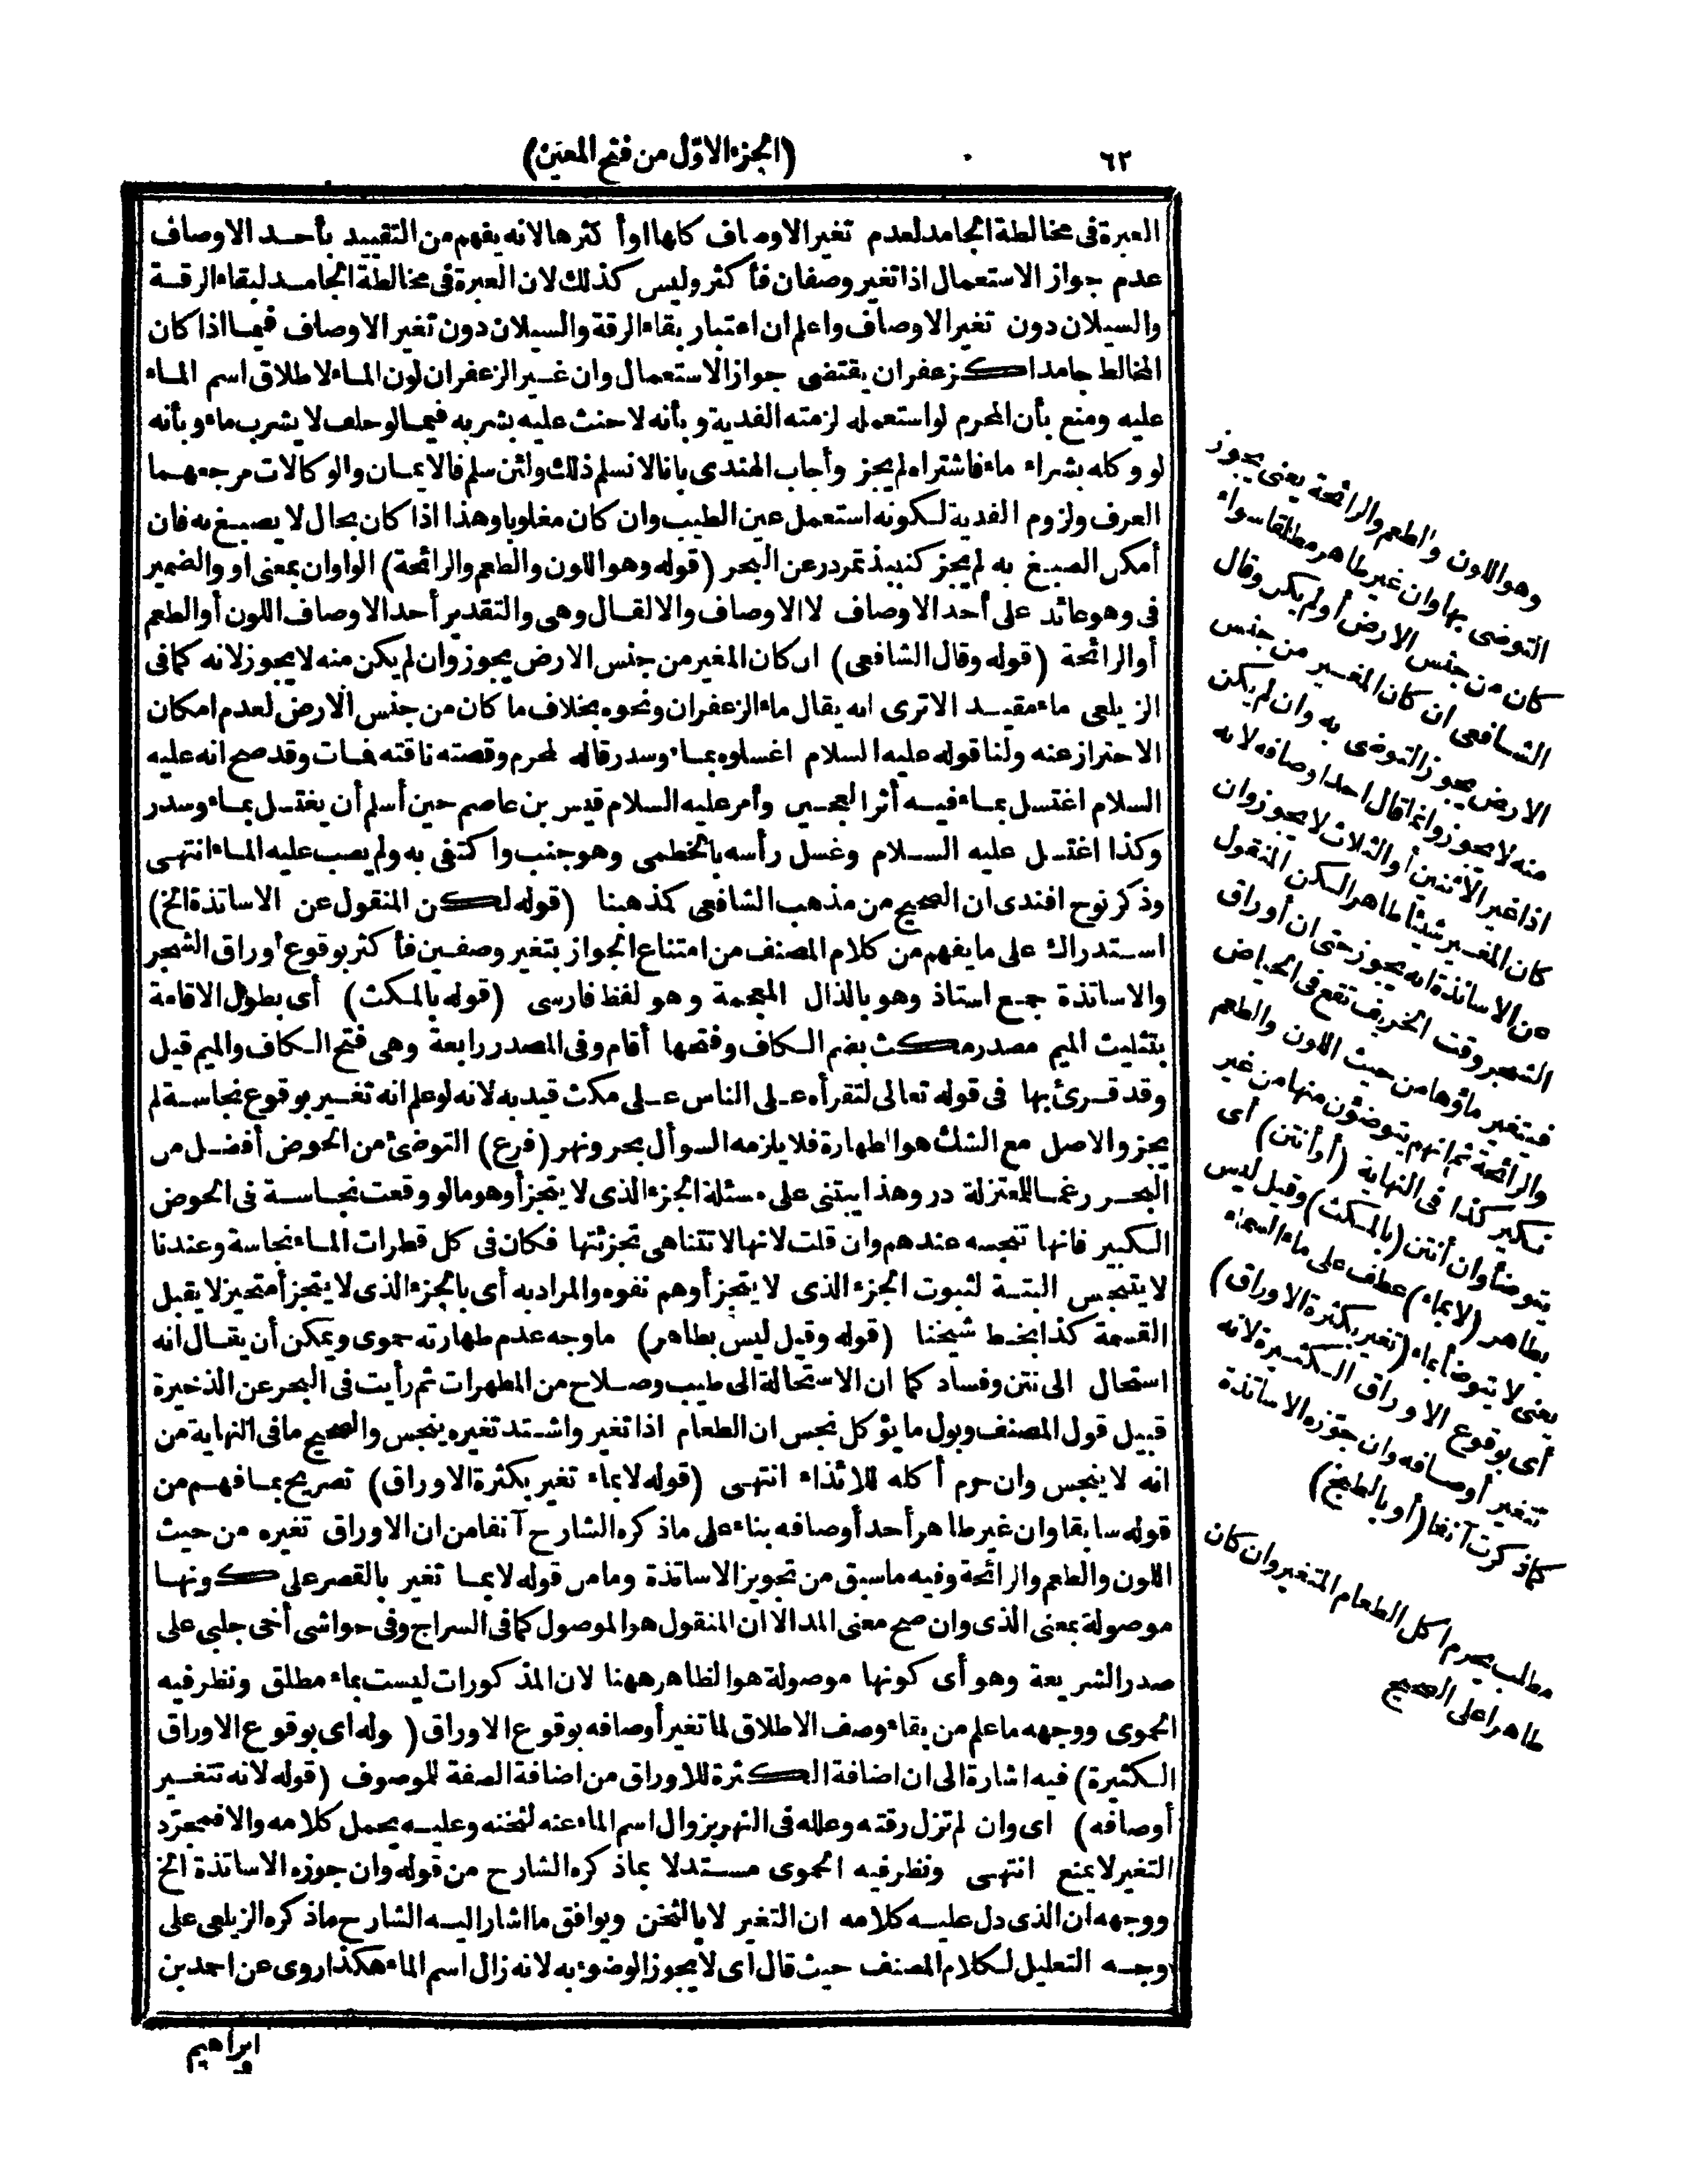 ٦٢
(الجزء الاوّل من فتح المعين)
العبرة فى مخالطة الجامد لعدم تغير الاوصاف كلها او أكثرها لانه يفهم من التقييد بأحد الاوصاف
عدم جواز الاستعمال اذا تغير وصفان فأكثر وليس كذلك لان العبرة فى مخالطة الجامد لبقاء الرقة
والسيلان دون تغير الاوصاف واعلم ان اعتبار بقاء الرقة والسيلان دون تغير الاوصاف فيما اذا كان
المخالط جامدا كزعفران يقتضى جواز الاستعمال وان غير الزعفران لون الماء لاطلاق اسم الماء
عليه ومنع بأن المحرم لو استعمله لزمته الفدية وبأنه لا حنث عليه بشربه فيما لو حلف لا يشرب ماء وبأنه
لو وكله بشراء ماء فاشتراه لم يجز وأجاب الهندى بانا لا نسلم ذلك ولئن سلم فالايمان والوكالات مرجعهما
العرف ولزوم الفدية لكونه استعمل عين الطيب وان كان مغلوبا وهذا اذا كان بحال لا يصبغ به فان
أمكن الصبغ به لم يجز كنبيذ تمر در عن البحر (قوله وهو اللون والطعم والرائحة) الواوان بمعنى او والضمير
فى وهو عائد على أحد الاوصاف لا الاوصاف والا لقال وهى والتقدير أحد الاوصاف اللون أو الطعم
أو الرائحة (قوله وقال الشافعى) ان كان المغير من جنس الارض يجوز وان لم يكن منه لا يجوز لانه كما فى
الزيلعى ماء مقيد الا ترى انه يقال ماء الزعفران ونحوه بخلاف ما كان من جنس الارض لعدم امكان
الاحتراز عنه ولنا قوله عليه السلام اغسلوه بماء وسدر قاله لمحرم وقصته ناقته فمات وقد صح انه عليه
السلام اغتسل بماء فيه أثر العجين وأمر عليه السلام قيس بن عاصم حين أسلم أن يغتسل بماء وسدر
وكذا اغتسل عليه السلام وغسل رأسه بالخطمى وهو جنب واكتفى به ولم يصب عليه الماء انتهى
وذكر نوح افندى ان الصحيح من مذهب الشافعى كمذهبنا (قوله لكن المنقول عن الاساتذة الخ)
استدراك على ما يفهم من كلام المصنف من امتناع الجواز بتغير وصفين فأكثر بوقوع أوراق الشجر
والاساتذة جمع استاذ وهو بالذال المعجمة وهو لفظ فارسى (قوله بالمكث) أى بطول الاقامة
بتثليث الميم مصدر مكث بضم الكاف وفتحها أقام وفى المصدر رابعة وهى فتح الكاف والميم قيل
وقد قرئ بها فى قوله تعالى لتقرأه على الناس على مكث قيد به لانه لو علم انه تغير بوقوع نجاسة لم
يجز والاصل مع الشك هو الطهارة فلا يلزمه السوأل بحر ونهر (فرع) التوضئ من الحوض أفضل من
البحر رغما للمعتزلة در وهذا يبتنى على مسئلة الجزء الذى لا يتجزأ وهو ما لو وقعت نجاسة فى الحوض
الكبير فانها تنجسه عندهم وان قلت لانها لا تتناهى تجزئتها فكان فى كل قطرات الماء نجاسة وعندنا
لا يتنجس البتة لثبوت الجزء الذى لا يتجزأ وهم نفوه والمراد به أى بالجزء الذى لا يتجزأ متحيز لا يقبل
القسمة كذا بخط شيخنا (قوله وقيل ليس بطاهر) ما وجه عدم طهارته حموى ويمكن أن يقال انه
استحال الى نتن وفساد كما ان الاستحالة الى طيب وصلاح من المطهرات ثم رأيت فى البحر عن الذخيرة
قبيل قول المصنف وبول ما يؤكل نجس ان الطعام اذا تغير واشتد تغيره ينجس والصحيح ما فى النهاية من
انه لا ينجس وان حرم أكله للايذاء انتهى (قوله لا بماء تغير بكثرة الاوراق) تصريح بما فهم من
قوله سابقا وان غير طاهر أحد أوصافه بناء على ما ذكره الشارح آنفا من ان الاوراق تغيره من حيث
اللون والطعم والرائحة وفيه ما سبق من تجويز الاساتذة وما من قوله لا بما تغير بالقصر على كونها
موصولة بمعنى الذى وان صح معنى المد الا ان المنقول هو الموصول كما فى السراج وفى حواشى أخى جلبى على
صدر الشريعة وهو أى كونها موصولة هو الظاهر ههنا لان المذكورات ليست بماء مطلق ونظر فيه
الحموى ووجهه ما علم من بقاء وصف الاطلاق لما تغير أوصافه بوقوع الاوراق (وله اى بوقوع الاوراق
الكثيرة) فيه اشارة الى ان اضافة الكثرة للاوراق من اضافة الصفة للموصوف (قوله لانه تتغير
أوصافه) اى وان لم تزل رقته وعلله فى النهر بزوال اسم الماء عنه لثخنه وعليه يحمل كلامه والا فمجرّد
التغير لا يمنع انتهى ونظر فيه الحموى مستدلا بما ذكره الشارح من قوله وان جوزه الاساتذة الخ
ووجهه ان الذى دل عليه كلامه ان التغير لا بالثخن ويوافق ما اشار اليه الشارح ما ذكره الزيلعى على
وجه التعليل لكلام المصنف حيث قال اى لا يجوز الوضوء به لانه زال اسم الماء هكذا روى عن احمد بن
ابراهيم
وهو اللون والطعم والرائحة يعنى يجوز
التوضى بها وان غير طاهر مطلقا سواء
كان من جنس الارض أو لم يكن وقال
الشافعى ان كان المغير من جنس
الارض يجوز التوضى به وان لم يكن
منه لا يجوز وانما قال احد اوصافه لانه
اذا غير الاثنين أو الثلاث لا يجوز وان
كان المغير شيئا طاهرا لكن المنقول
عن الاساتذة انه يجوز حتى ان أوراق
الشجر وقت الخريف تقع فى الحياض
فيتغير ماؤها من حيث اللون والطعم
والرائحة ثم انهم يتوضئون منها من غير
نكير كذا فى النهاية (أو أنتن) أى
يتوضأ وان أنتن (بالمكث) وقيل ليس
بطاهر (لا بماء) عطف على ماء السماء
يعنى لا يتوضأ بماء (تغير بكثرة الاوراق)
أى بوقوع الاوراق الكثيرة لانه
تتغير أوصافه وان جوّزه الاساتذة
كما ذكرت آنفا (أو بالطبخ)
مطلب يحرم اكل الطعام المتغير وان كان
طاهرا على الصحيح